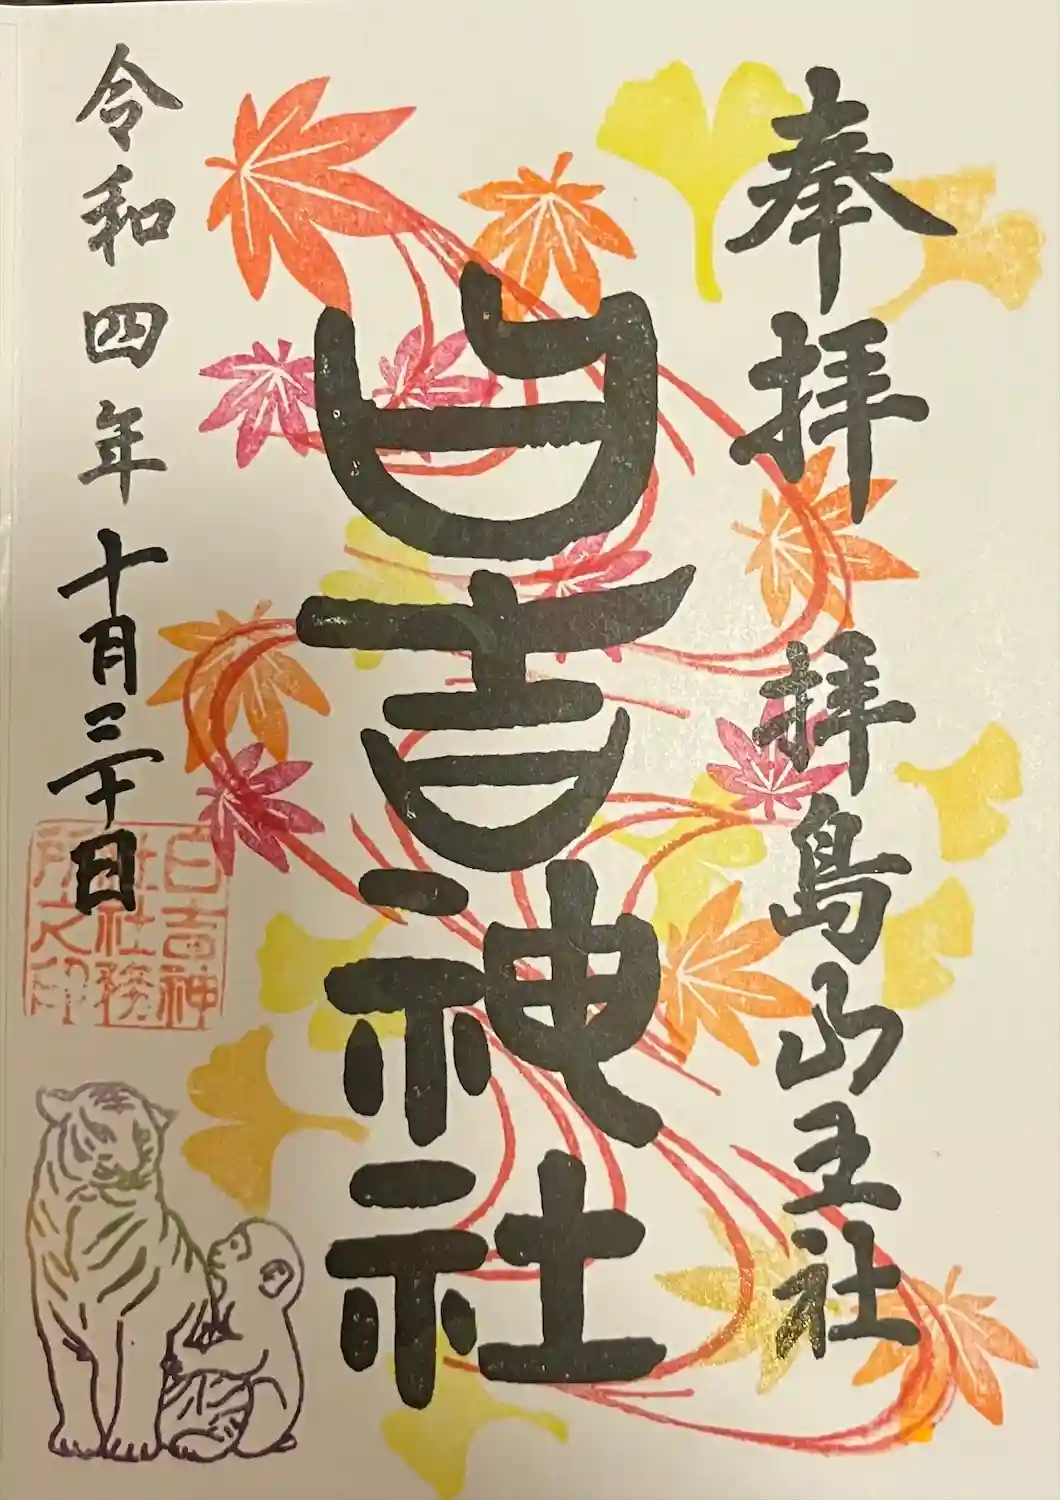 奉拝 拝島山王社
日吉神社
令和四年十月三十日
日吉神
社社務
所之印